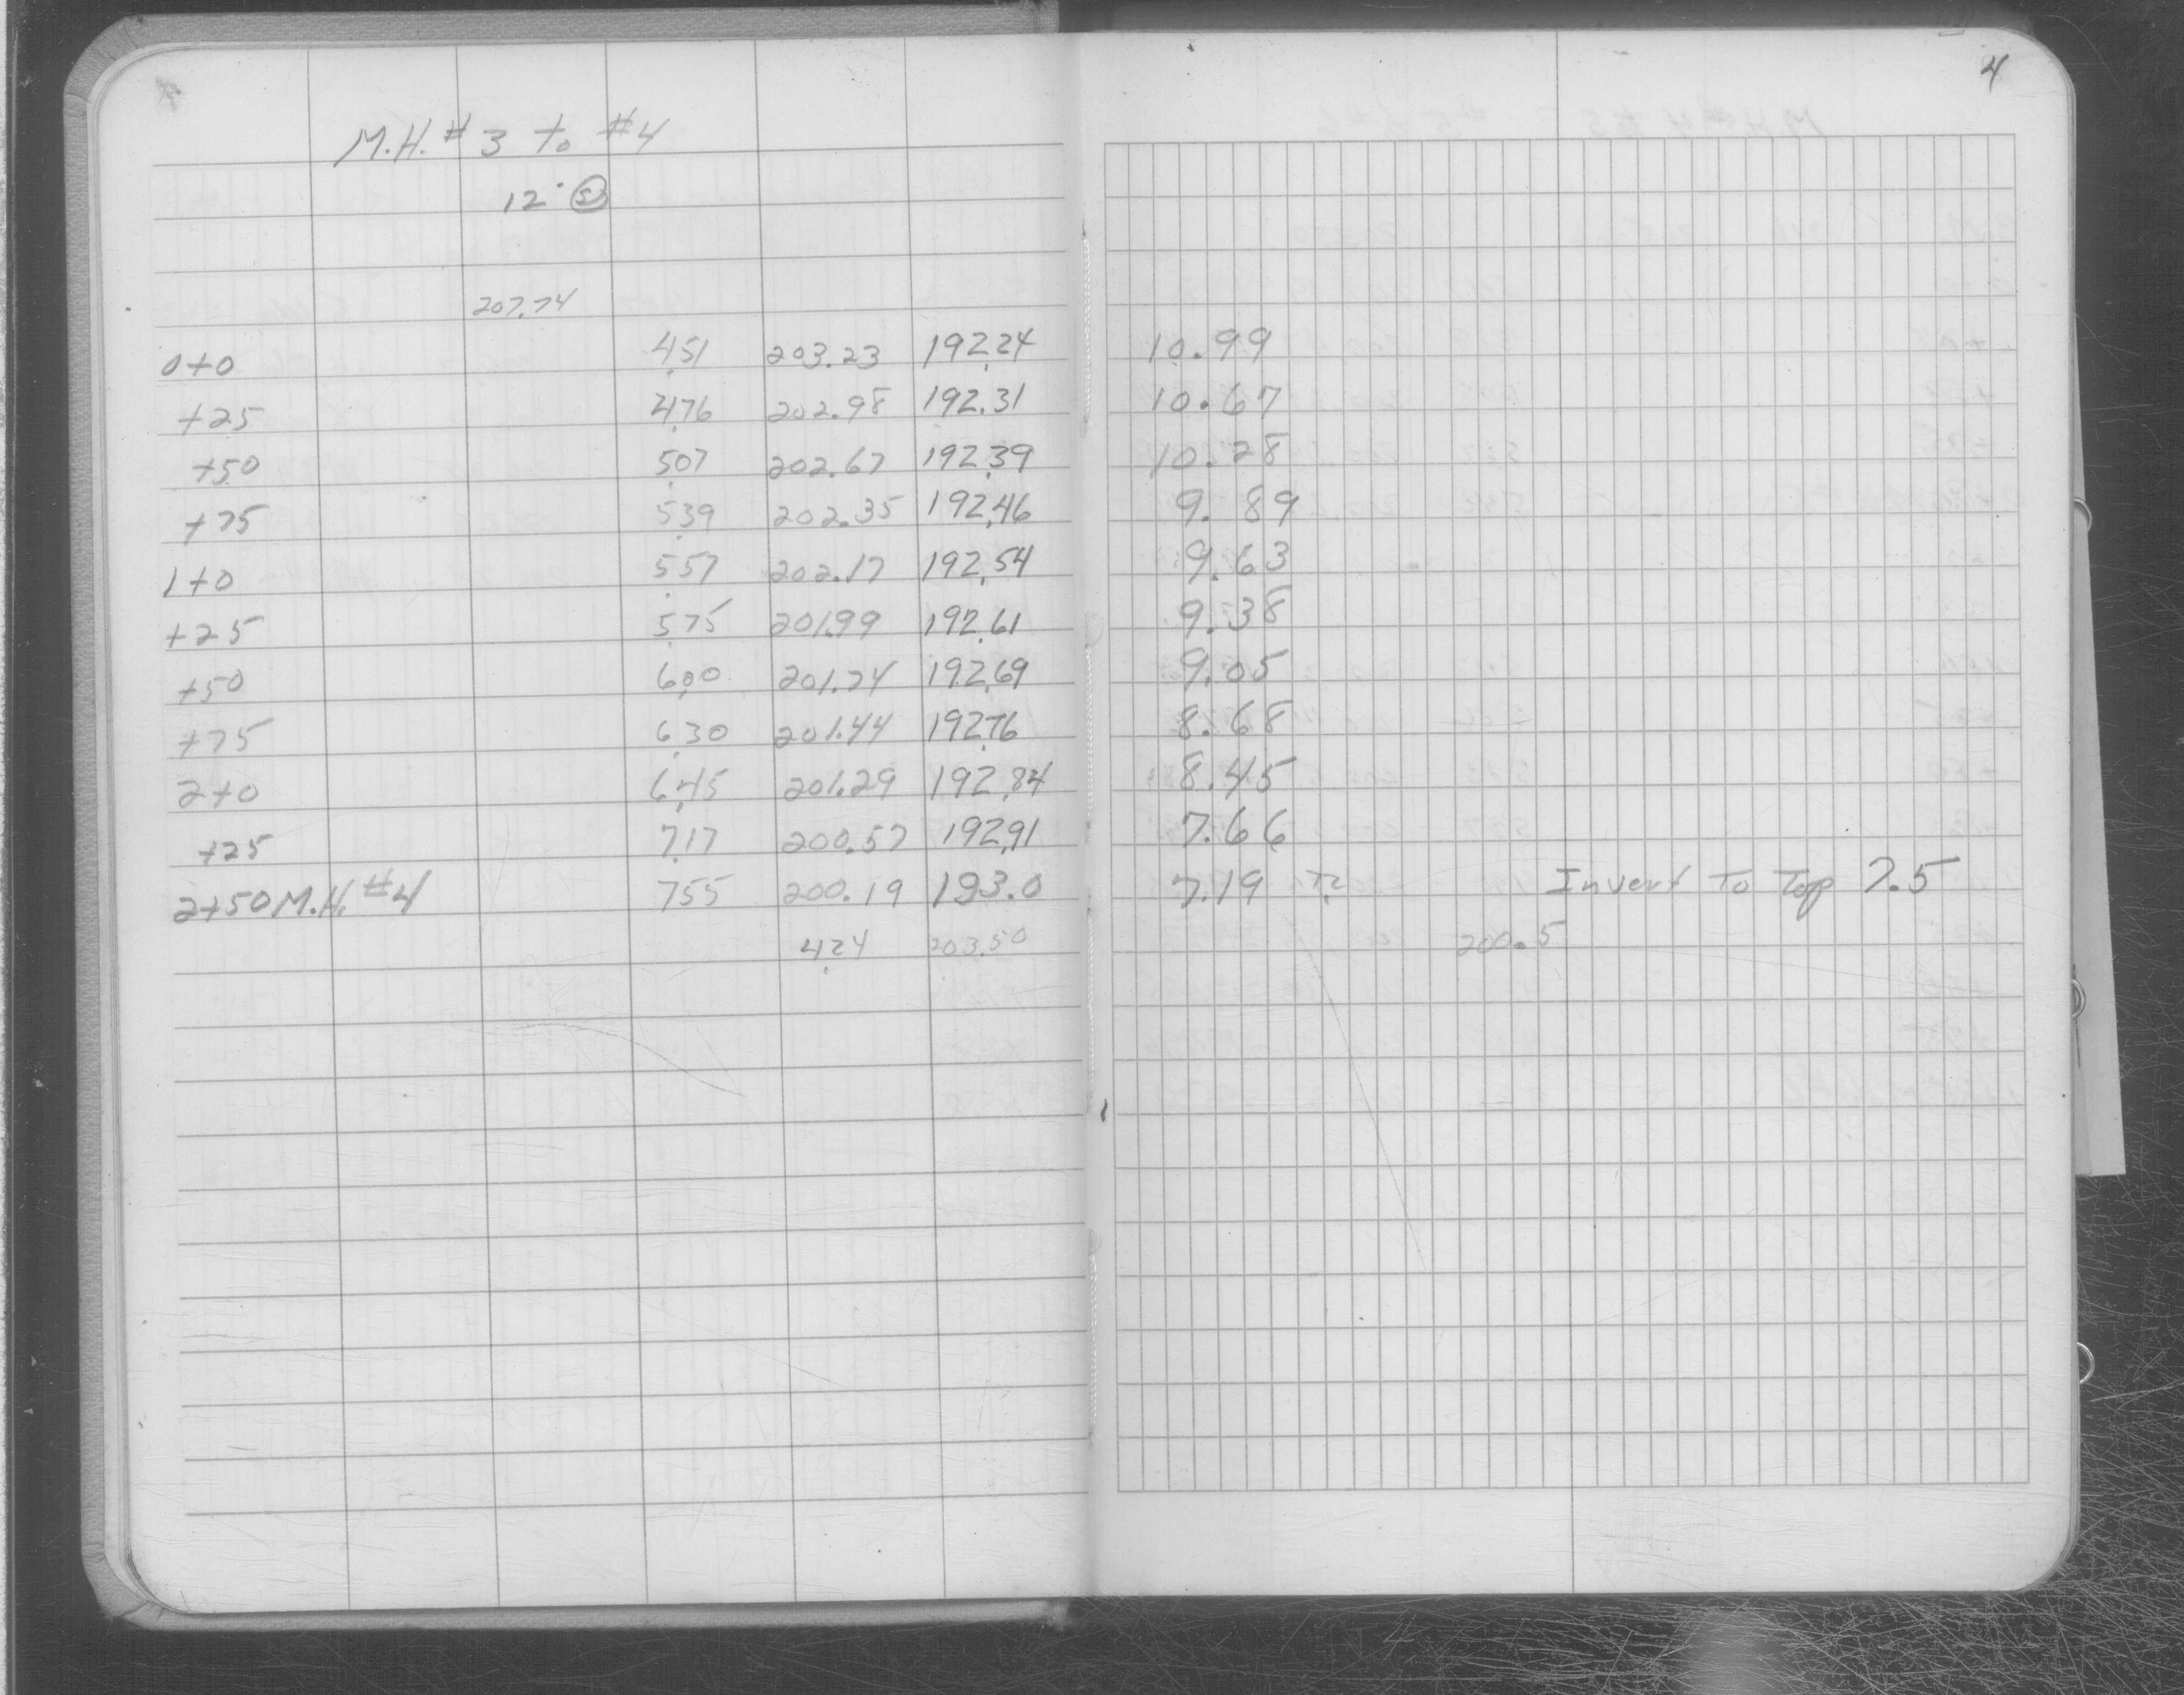 4
M.H. # 3 to #4
12" (S)
207.74
0+0 4.51 203.23 192.24 10.99
+25 4.76 202.98 192.31 10.67
+50 5.07 202.67 192.39 10.28
+75 5.39 202.35 192.46 9.89
1+0 5.57 202.17 192.54 9.63
+25 5.75 201.99 192.61 9.38
+50 6.00 201.74 192.69 9.05
+75 6.30 201.44 192.76 8.68
2+0 6.45 201.29 192.84 8.45
+25 7.17 200.57 192.91 7.66
2+50 M.H. #4 755 200.19 193.0 7.19 Invert To Top 7.5
4.24 203.50 200.5